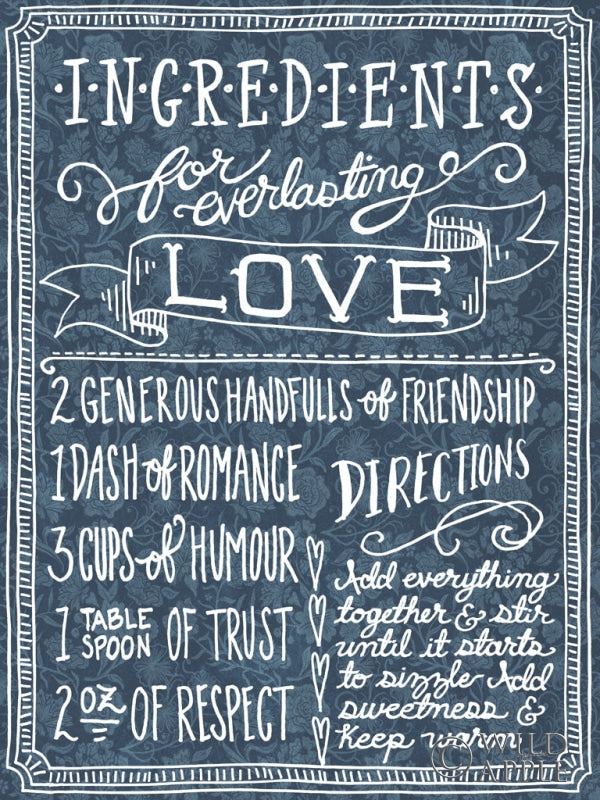 ·I·N·G·R·E·D·I·E·N·T·S·
for everlasting
LOVE
2 GENEROUS HANDFULLS of FRIENDSHIP
1 DASH of ROMANCE
3 CUPS of HUMOUR
1 TABLE SPOON OF TRUST
2 OZ OF RESPECT
DIRECTIONS
Add everything
together & stir
until it starts
to sizzle Add
sweetness &
keep warm
© WILD
APPLE